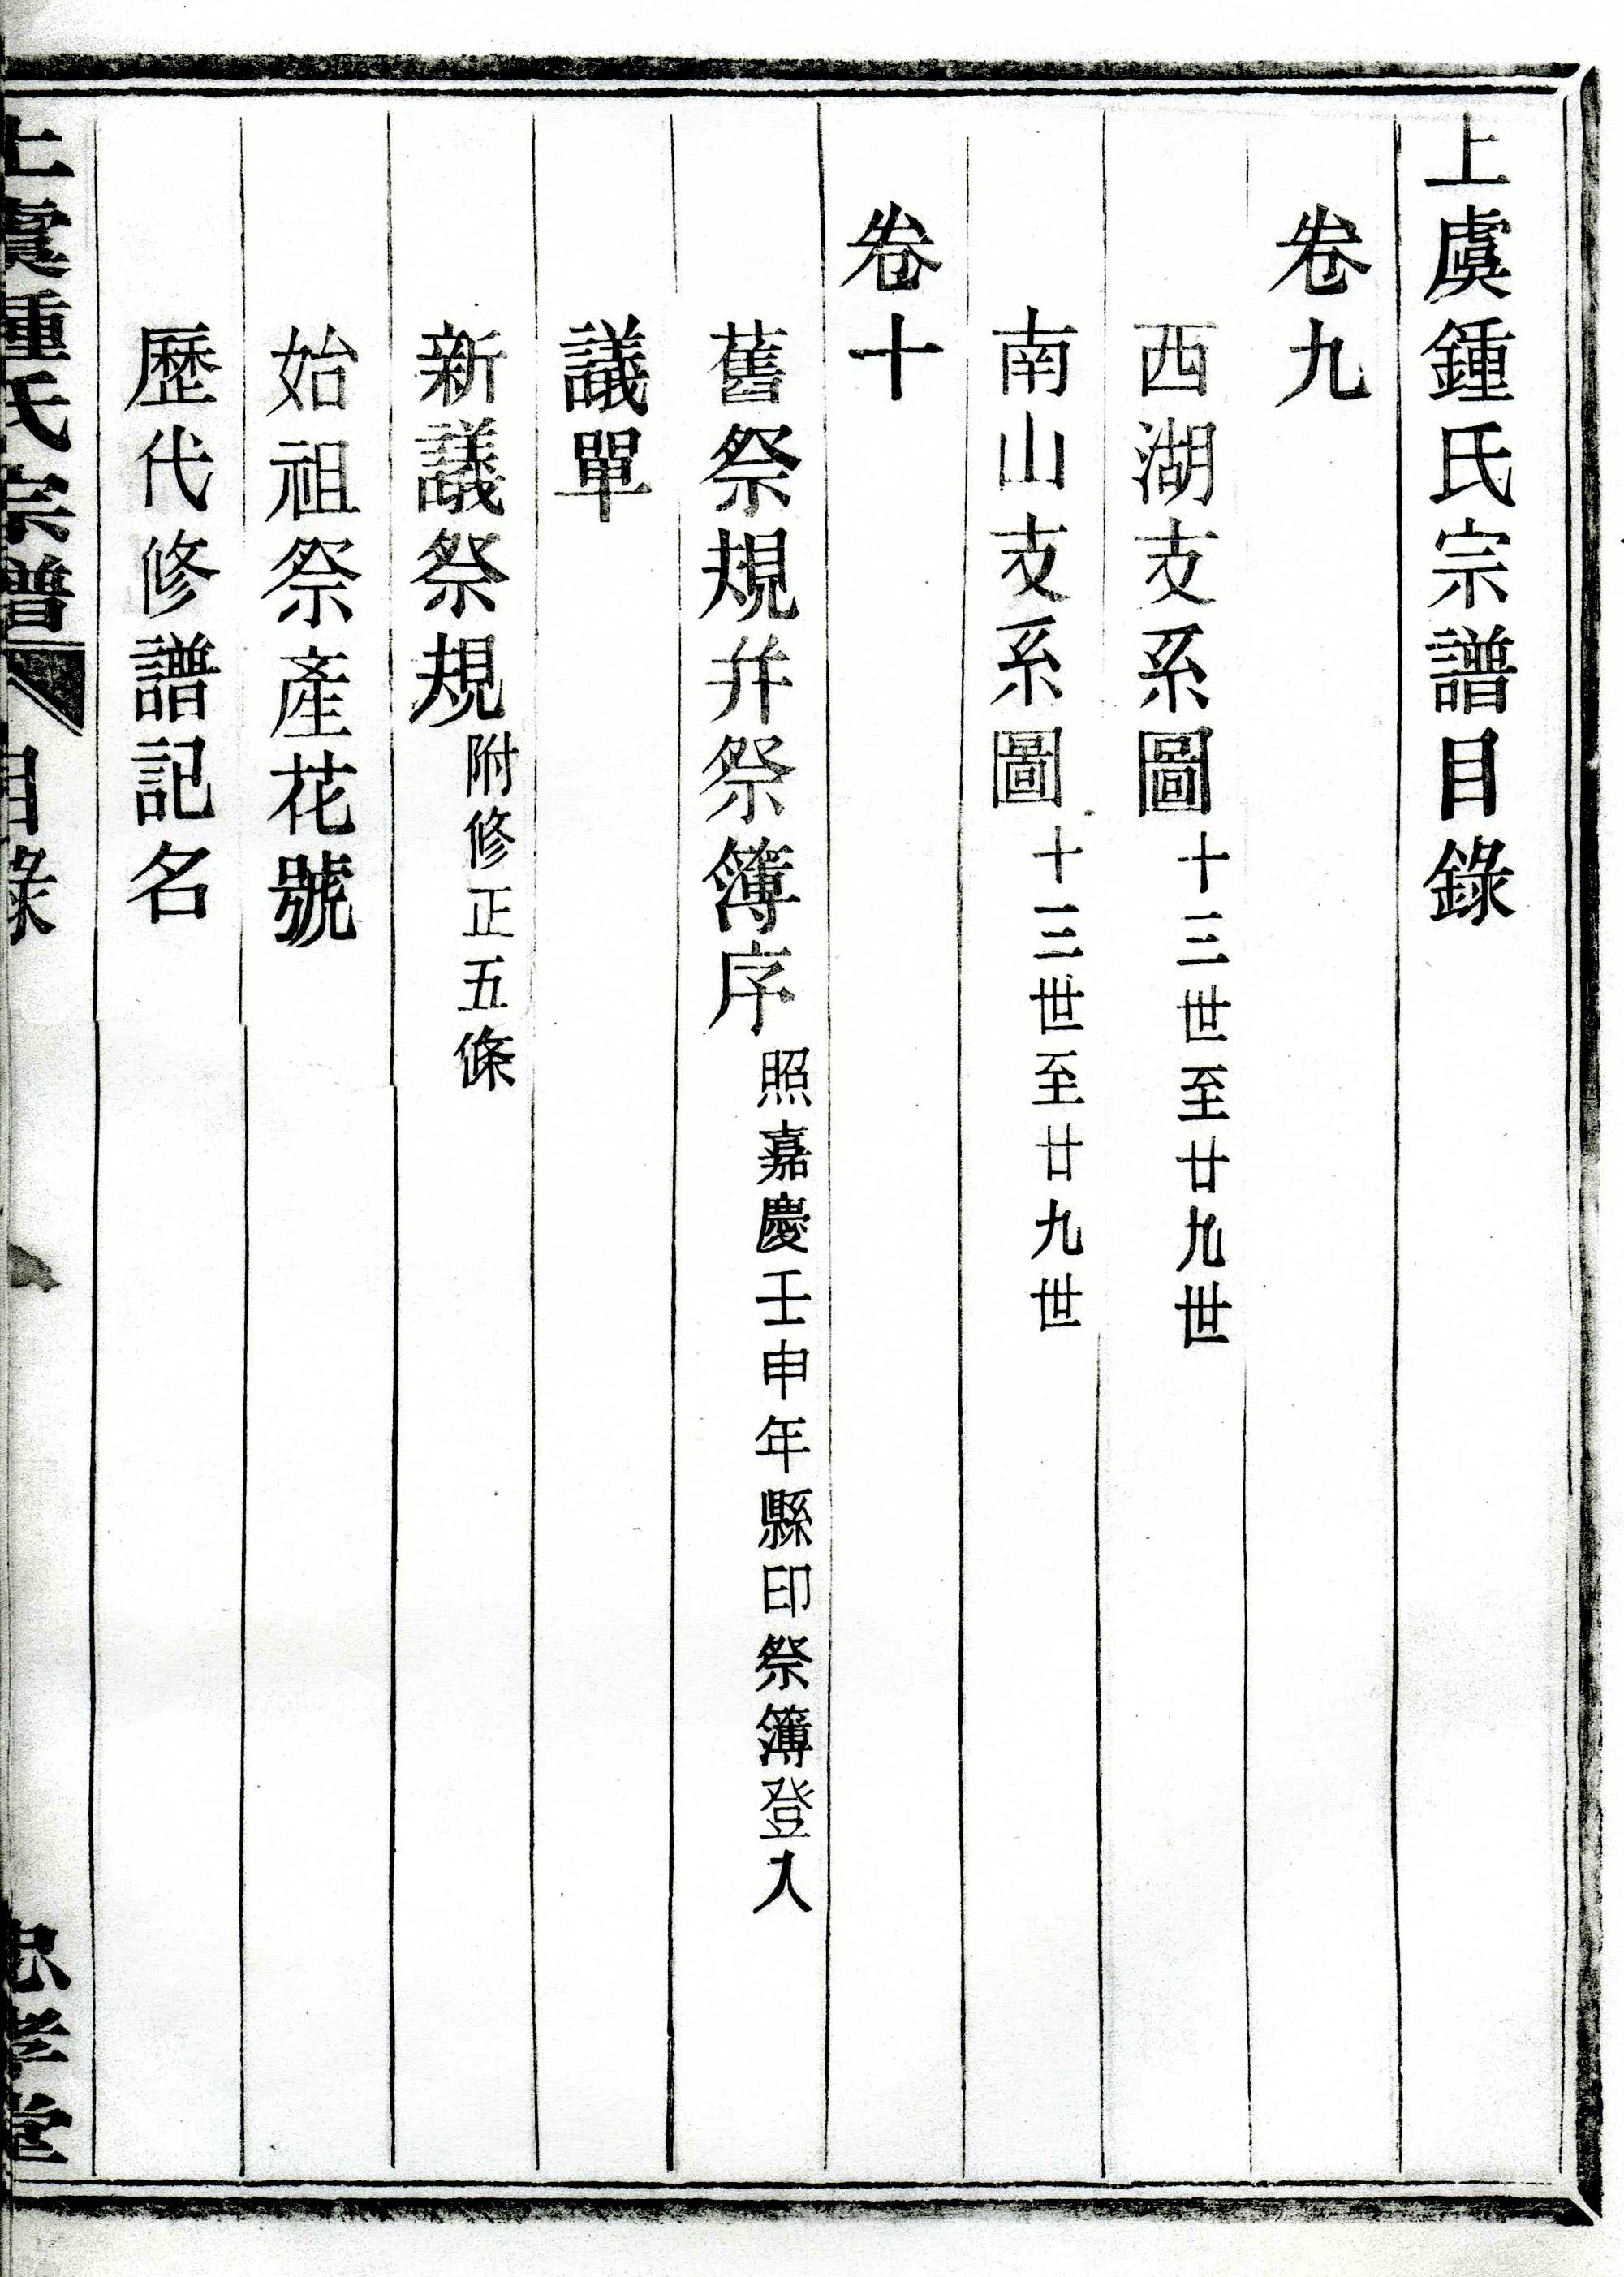 上虞鍾氏宗譜目錄
卷九
西湖支系圖十三世至廿九世
南山支系圖十三世至廿九世
卷十
舊祭規幷祭簿序照嘉慶壬申年縣印祭簿登入
議單
新議祭規附修正五條
始祖祭產花號
歷代修譜記名
上虞鍾氏宗譜 目錄 忠孝堂